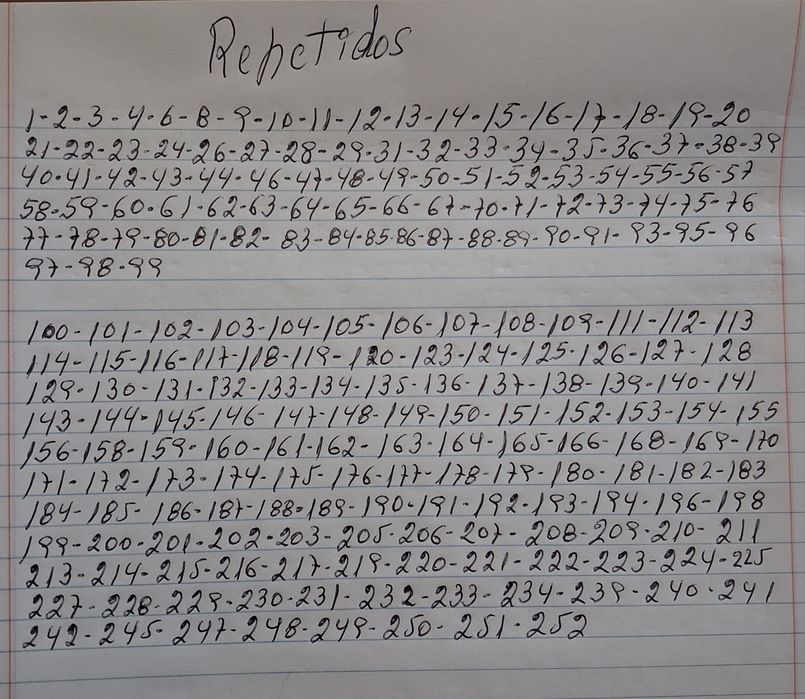 Repetidos
1-2-3-4-6-8-9-10-11-12-13-14-15-16-17-18-19-20
21-22-23-24-26-27-28-29-31-32-33-34-35-36-37-38-39
40-41-42-43-44-46-47-48-49-50-51-52-53-54-55-56-57
58-59-60-61-62-63-64-65-66-67-70-71-72-73-74-75-76
77-78-79-80-81-82-83-84-85-86-87-88-89-90-91-93-95-96
97-98-99
100-101-102-103-104-105-106-107-108-109-111-112-113
114-115-116-117-118-119-120-123-124-125-126-127-128
129-130-131-132-133-134-135-136-137-138-139-140-141
143-144-145-146-147-148-149-150-151-152-153-154-155
156-158-159-160-161-162-163-164-165-166-168-169-170
171-172-173-174-175-176-177-178-179-180-181-182-183
184-185-186-187-188-189-190-191-192-193-194-196-198
199-200-201-202-203-205-206-207-208-209-210-211
213-214-215-216-217-219-220-221-222-223-224-225
227-228-229-230-231-232-233-234-239-240-241
242-245-247-248-249-250-251-252